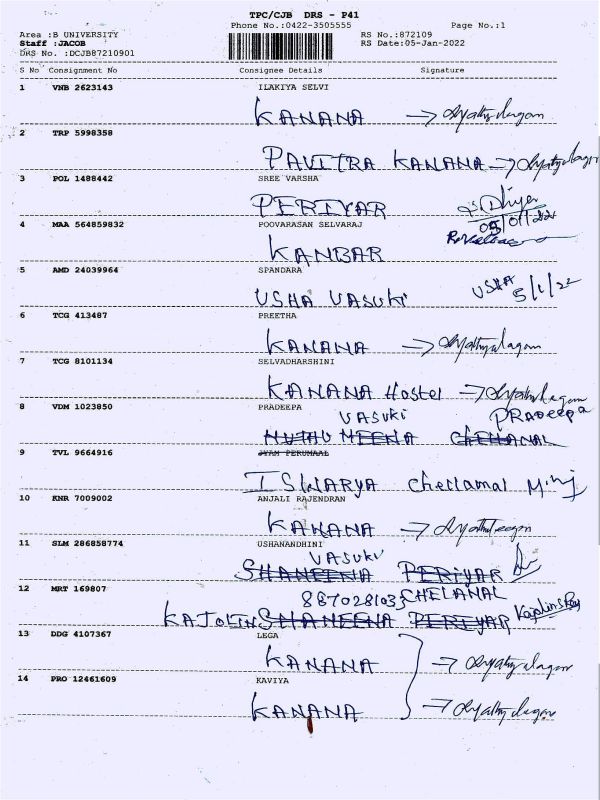 TPC/CJB DRS - P41
Phone No.:0422-3505555 Page No.:1
Area :B UNIVERSITY RS No.:872109
Staff :JACOB RS Date:05-Jan-2022
DRS No. :DCJB87210901
S No Consignment No Consignee Details Signature
1 VNB 2623143 ILAKIYA SELVI
KANANA
2 TRP 5998358
PAVITRA KANANA
3 POL 1488442 SREE VARSHA
PERIYAR
05/01/22
4 MAA 564859832 POOVARASAN SELVARAJ
KANBAR
5 AMD 24039964 SPANDARA
USHA VASUKI USHA 5/1/22
6 TCG 413487 PREETHA
KANANA
7 TCG 8101134 SELVADHARSHINI
KANANA Hostel
8 VDM 1023850 PRADEEPA
VASUKI PRADeepa
MUTHU MEENA CHELLAMAL
9 TVL 9664916 JYAM PERUMAAL
ISWARYA Chellamal
10 KNR 7009002 ANJALI RAJENDRAN
KANANA
11 SLM 286858774 USHANANDHINI
VASUKI
SHANEENA PERIYAR
12 MRT 169807 8870281035 CHELANAL
KAJOLIN SHANEENA PERIYAR
13 DDG 4107367 LEGA
KANANA
14 PRO 12461609 KAVIYA
KANANA